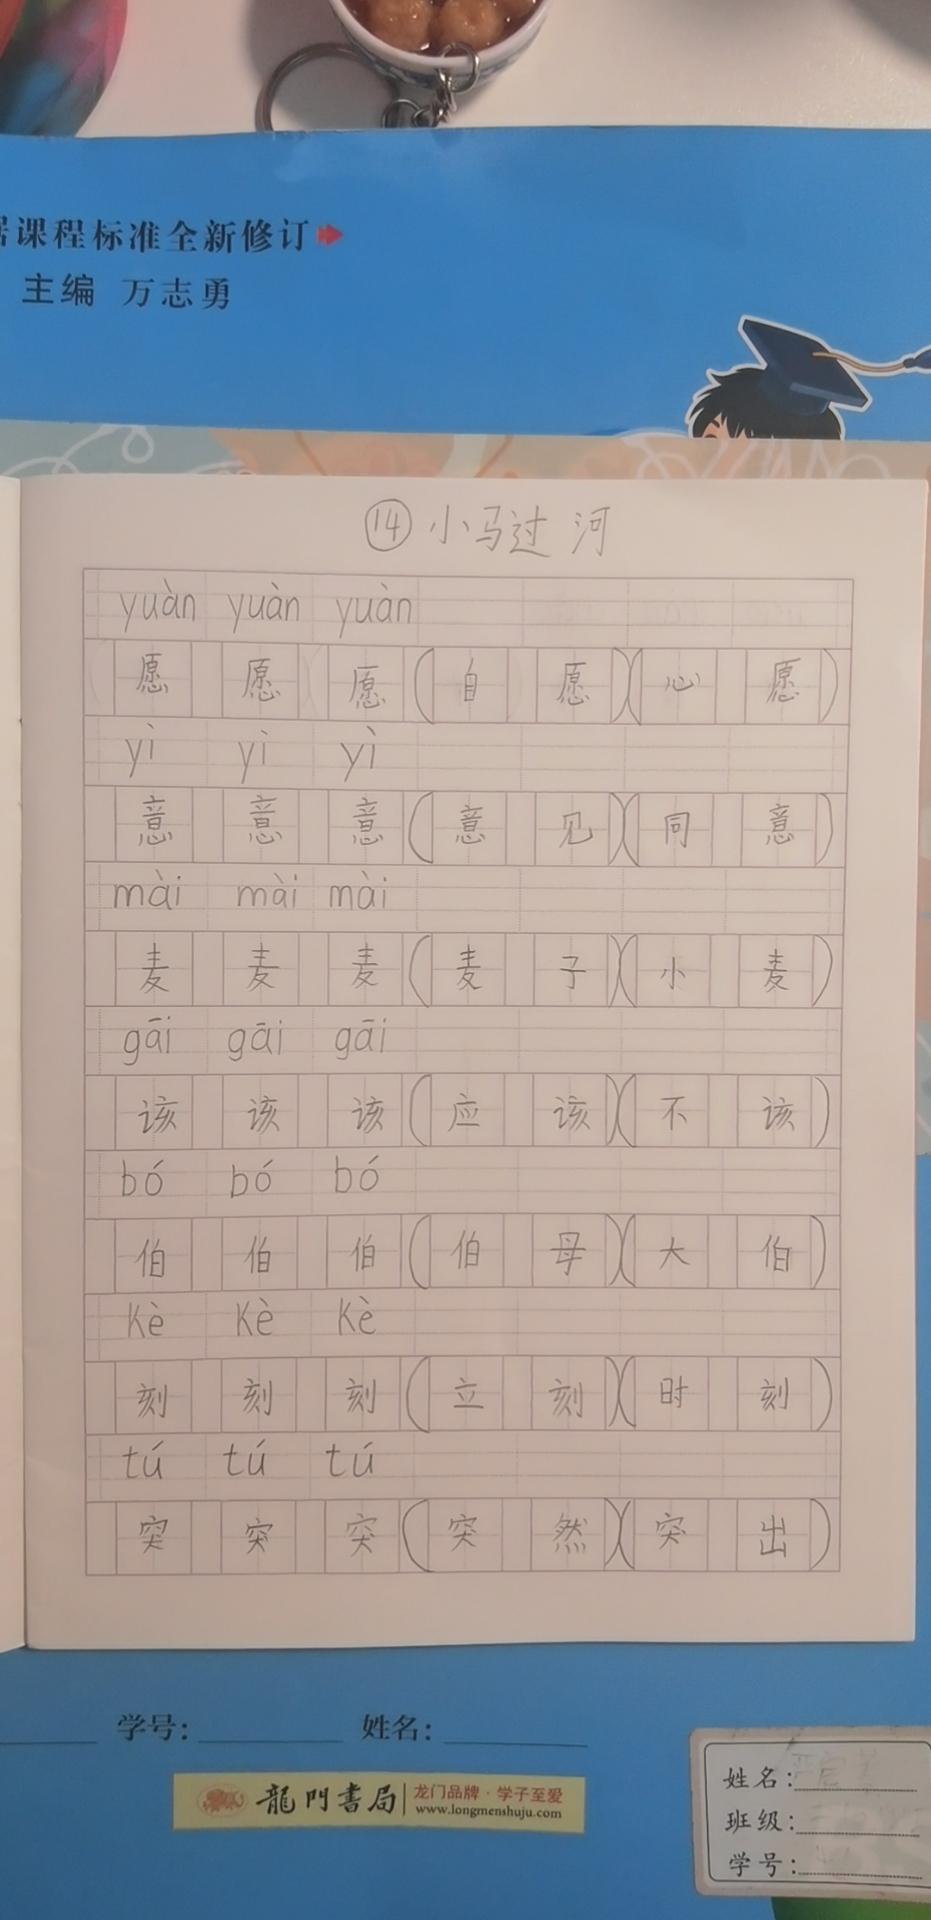 课程标准全新修订
主编 万志勇
⑭小马过河
yuàn yuàn yuàn
愿 愿 愿 (自 愿)(心 愿)
yì yì yì
意 意 意 (意 见)(同 意)
mài mài mài
麦 麦 麦 (麦 子)(小 麦)
gāi gāi gāi
该 该 该 (应 该)(不 该)
bó bó bó
伯 伯 伯 (伯 母)(大 伯)
kè kè kè
刻 刻 刻 (立 刻)(时 刻)
tú tú tú
突 突 突 (突 然)(突 出)
学号: 姓名:
龍門書局 龙门品牌·学子至爱
www.longmenshuju.com
姓名:
班级:
学号: